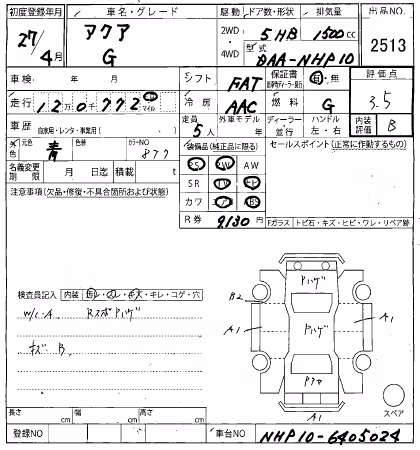 初度登録年月 車名・グレード 駆動 ドア数・形状 排気量 出品NO.
27/4月 アクア G 2WD・4WD 5HB 1500cc 2513
型式 DAA-NHP10
車検 年 月 シフト FAT 保証書 有・無 評価点 3.5
走行 12万0千772 km マイル 冷房 AAC 燃料 G
車歴 自家用・レンタ・事業用( ) 定員 5人 外車モデル 年 ディーラー・並行 ハンドル 左・右 内装評価 B
外色 元色 青 色替 カラーNO 877 装備品(純正品に限る) セールスポイント(正常に作動するもの)
PS PW AW
名義変更期限 月 日迄 積載 t SR
注意事項(欠品・修復・不具合箇所および状態) カワ
R券 9130 円 Fガラス トビ石・キズ・ヒビ・ワレ・リペア跡
検査員記入 内装 キレ・コゲ・穴
W/C-A
キズ B
B2
A1
A1
A1
スペア
長さ cm 幅 cm 高さ cm
登録NO 車台NO NHP10-6405024